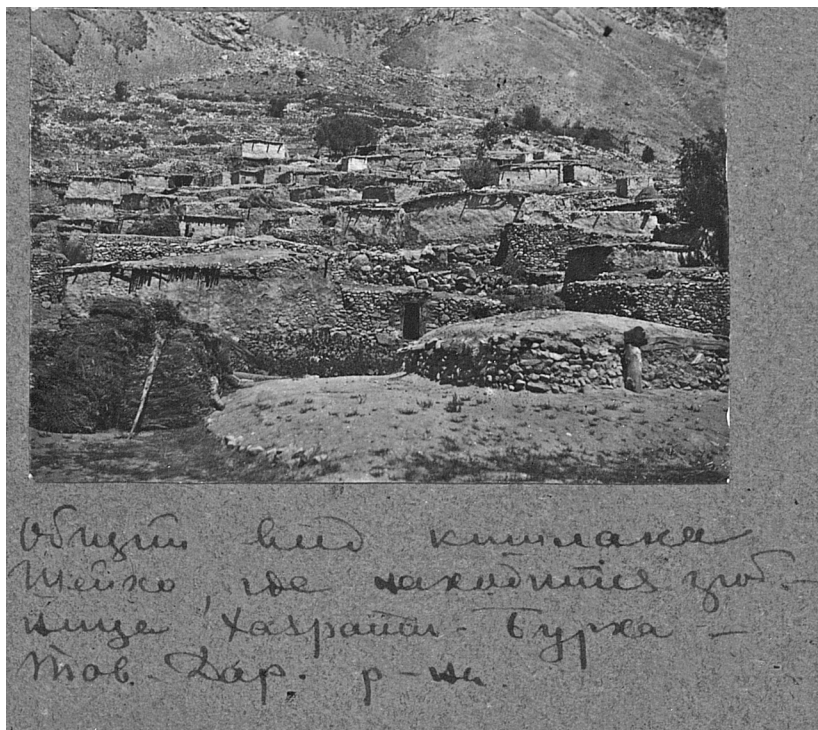 Общий вид кишлака
Шейхо, где находится гроб-
ница Хазрати-Бурха -
Тов.-Дар. р-на